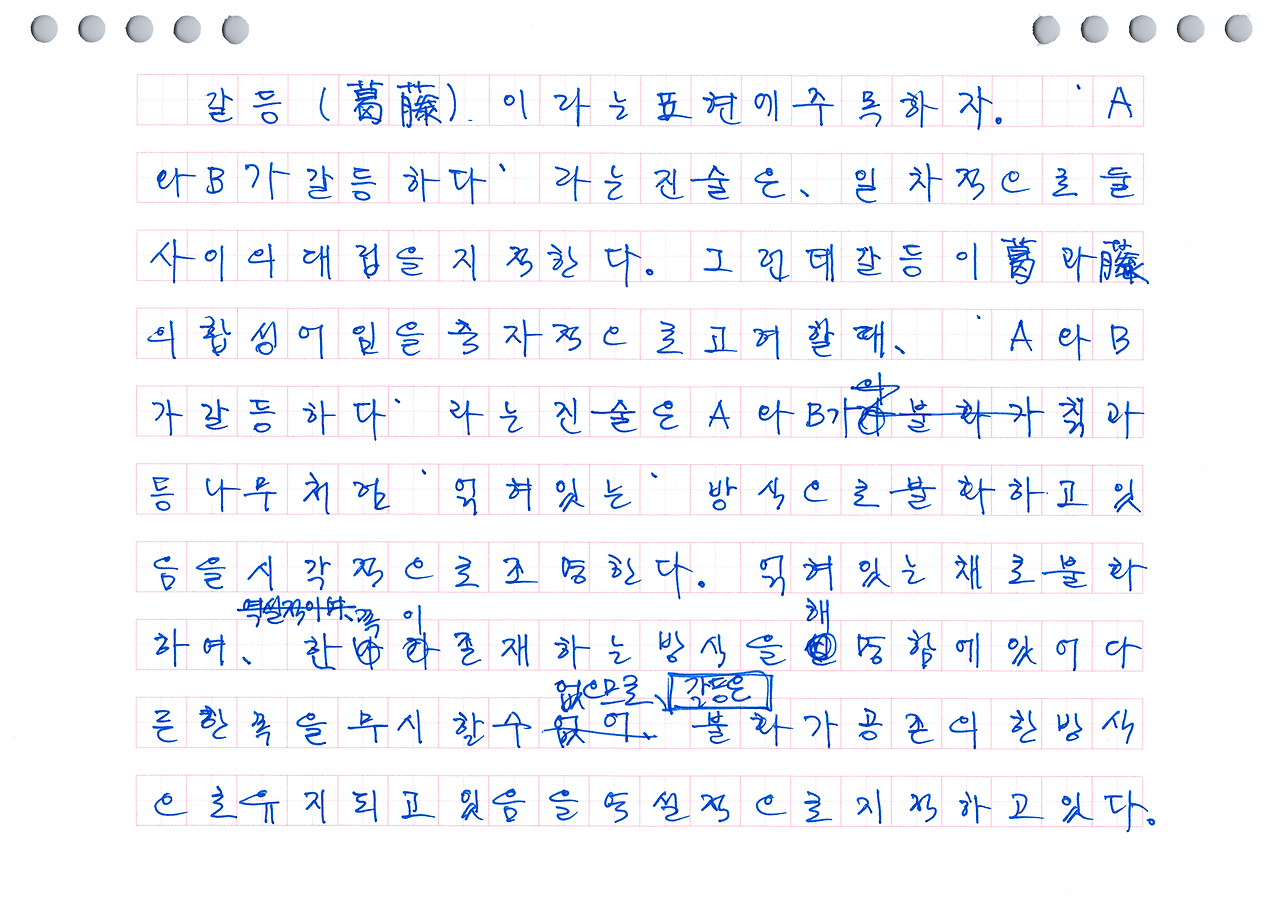 갈등(葛藤).이라는 표현에 주목하자. 'A
와 B가 갈등하다' 라는 진술은, 일차적으로 둘
사이의 대립을 지적한다. 그런데 갈등이 葛과 藤
의 합성어임을 축자적으로 고려할 때, 'A와 B
가 갈등하다' 라는 진술은 A와 B가 불화가 칡과
등나무처럼 '얽혀있는' 방식으로 불화하고 있
음을 시각적으로 조명한다. 얽혀있는 채로 불화
역설적이게,쪽 이 해
하여, 한 존재하는 방식을 명함에 있어 다
없으므로, 갈등은
른 한 쪽을 무시할 수 없어. 불화가 공존의 한 방식
으로 유지되고 있음을 역설적으로 지적하고 있다.